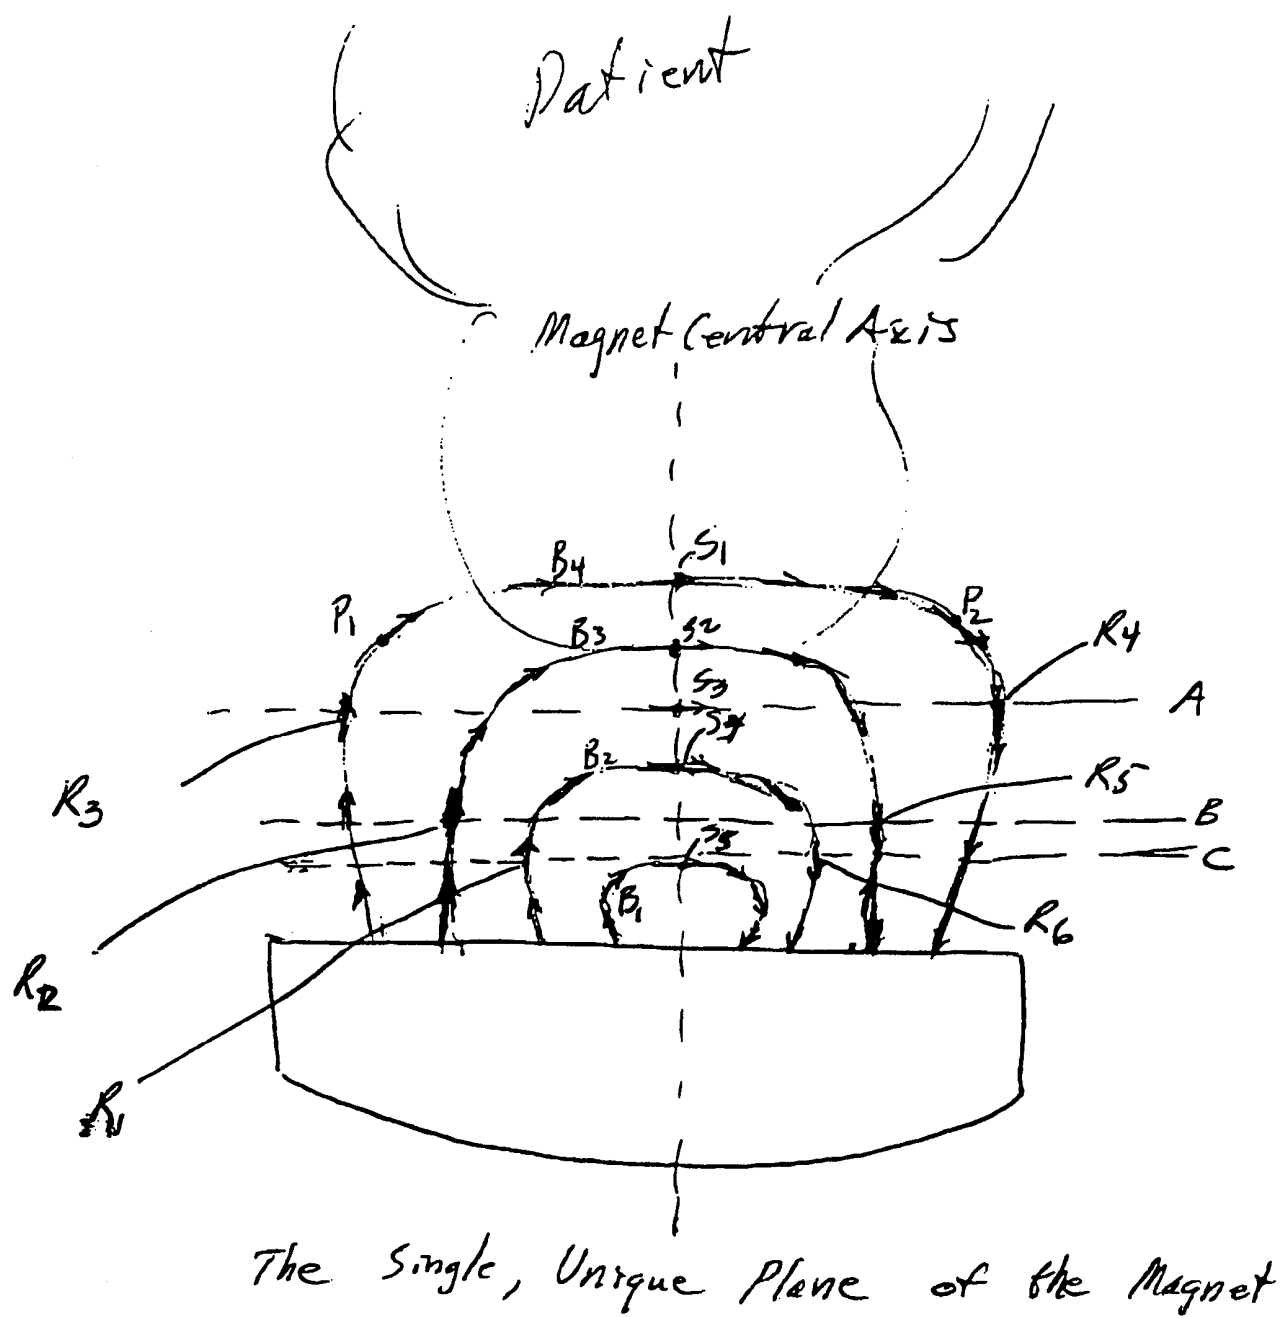 Patient
Magnet Central Axis
S1
B4
P1
P2
B3
S2
R4
S3
A
S4
B2
R5
R3
B
S5
C
B1
R6
R2
R1
The Single, Unique Plane of the Magnet